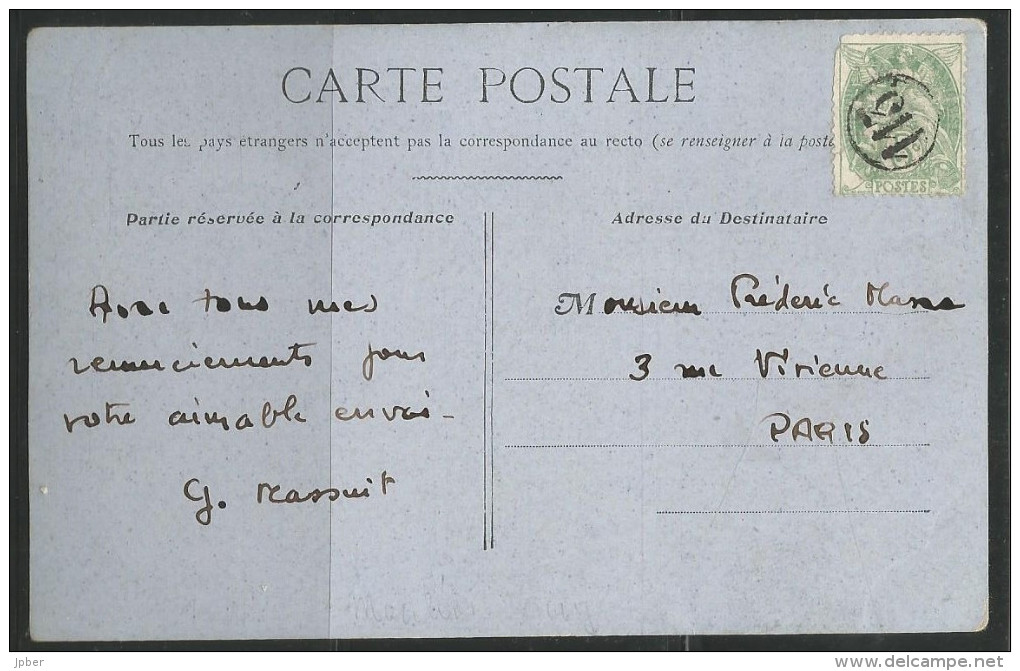 CARTE POSTALE
Tous les pays étrangers n'acceptent pas la correspondance au recto (se renseigner à la poste
Partie réservée à la correspondance
Adresse du Destinataire
Avec tous mes
remerciements pour
votre aimable envoi -
G. Massuit
Monsieur Fréderic
3 rue Vivienne
PARIS
POSTES
jpber
www.delcampe.net